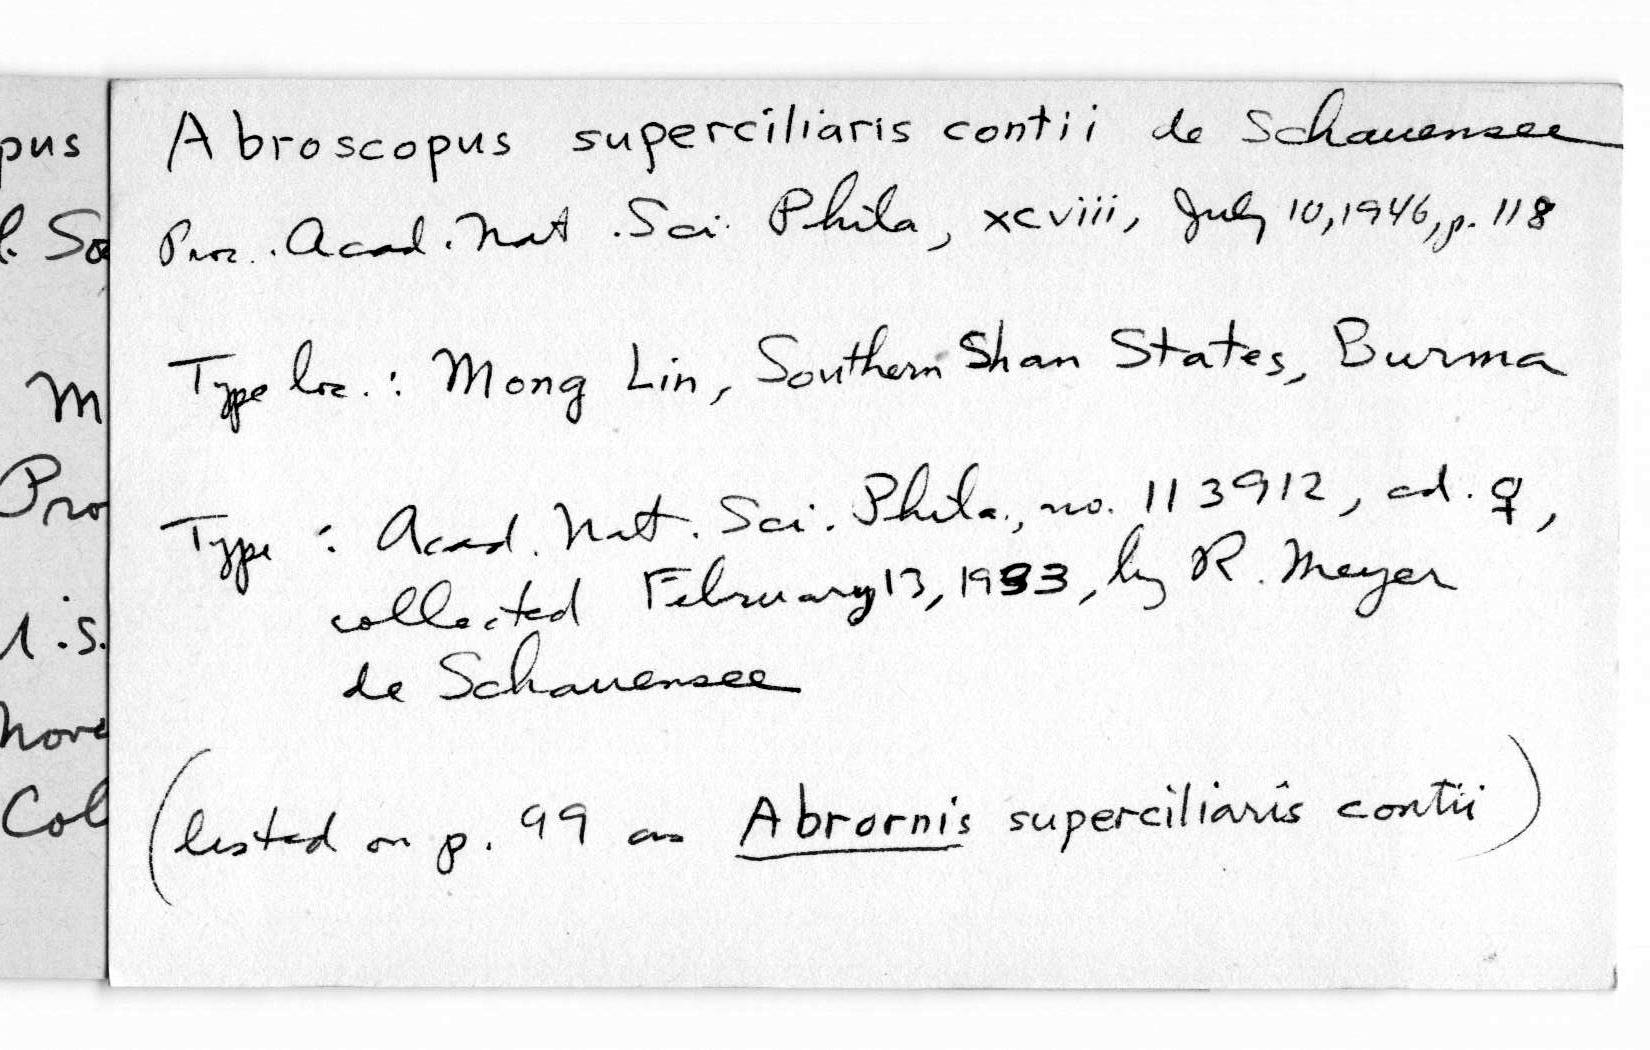 pus
l. So
M
Pro
1.S.
nove
Col
Abroscopus superciliaris contii de Schauensee
Proc. Acad. Nat. Sci. Phila, xcviii, July 10, 1946, p. 118
Type loc.: Mong Lin, Southern Shan States, Burma
Type : Acad. Nat. Sci. Phila., no. 113912, ad. ♀,
collected February 13, 1933, by R. Meyer
de Schauensee
(listed on p. 99 as Abrornis superciliaris contii)